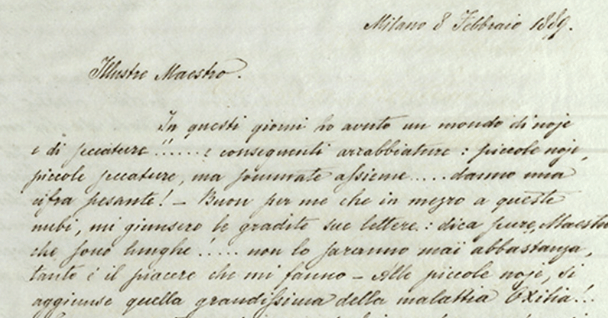 Milano 8 Febbraio 1889.
Illustre Maestro.
In questi giorni ho avuto un mondo di noje
e di seccature!!..... e conseguenti arrabbiature: piccole noje,
piccole seccature, ma sommate assieme.... danno una
cifra pesante! - Buon per me che in mezzo a queste
nubi, mi giunsero le gradite sue lettere.: dica pure, Maestro
che sono lunghe!.... non lo saranno mai abbastanza,
tanto è il piacere che mi fanno - Alle piccole noje, si
aggiunse quella grandissima della malattia